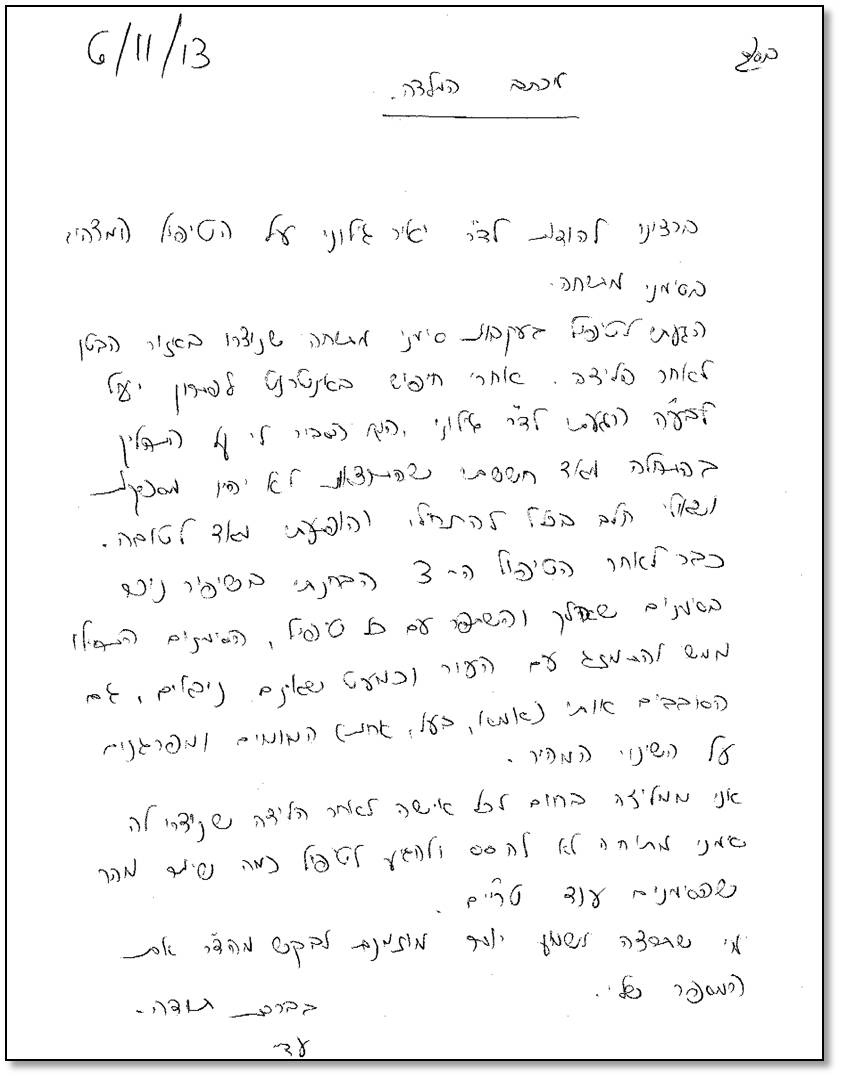 6/11/13
בס"ד
מכתב המלצה.
ברצוני להודות לד"ר יאיר גילוני על הטיפול המצויין
בסימני מתיחה.
הגעתי לטיפול בעקבות סימני מתיחה שנוצרו באזור הבטן
לאחר הלידה. אחרי חיפוש באינטרנט לפתרון יעיל
לבעיה הגעתי לד"ר גילוני, הוא הסביר לי על התהליך
בהתחלה מאד חששתי שהתוצאות לא יהיו מספקות
ושאולי חלב בכלל להתחיל, והופתעתי מאד לטובה.
כבר לאחר הטיפול ה-3 הבחנתי בשיפור ניכר
בסימנים שהלך והשתפר עם כל טיפול, הסימנים התחילו
ממש להתמזג עם העור וכמעט שאינם ניכרים, גם
הסובבים אותי (אמא, בעל, אחות) המומים ומפרגנים
על השינוי המהיר.
אני ממליצה בחום לכל אישה לאחר הלידה שנוצרו לה
סימני מתיחה לא להסס ולהגיע לטיפול כמה שיותר מהר
שהסימנים עוד טריים.
מי שתרצה לשמוע יותר מוזמנת לבקש מהד"ר את
המספר שלי.
בברכת תודה.